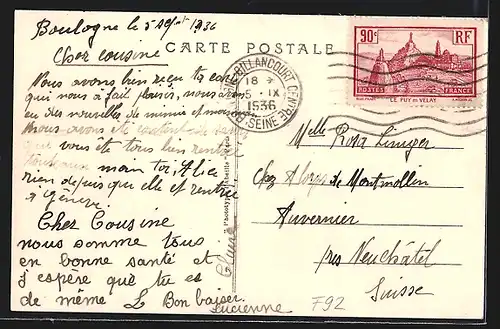 Boulogne le 5 sept 1936
Cher cousine
CARTE POSTALE
BILLANCOURT CENTRE
18 *
5 - IX
1936
SEINE
90c
RF
POSTES
FRANCE
LE PUY EN VELAY
Nous avons bien reçu ta carte
qui nous a fait plaisir, nous avons
eu des nouvelles de mimie et
Nous avons été content de
que vous ête tous bien rentré
moi toi, Alice
rien depuis que elle et rentrée
a Genève.
Cher Cousine
nous somme tous
en bonne santé et
j'espère que tu es
de même Le Bon baiser
Lucienne
Melle Rosa Liniger
chez Aloys de Montmollin
Auvernier
près Neuchâtel
Suisse
F92